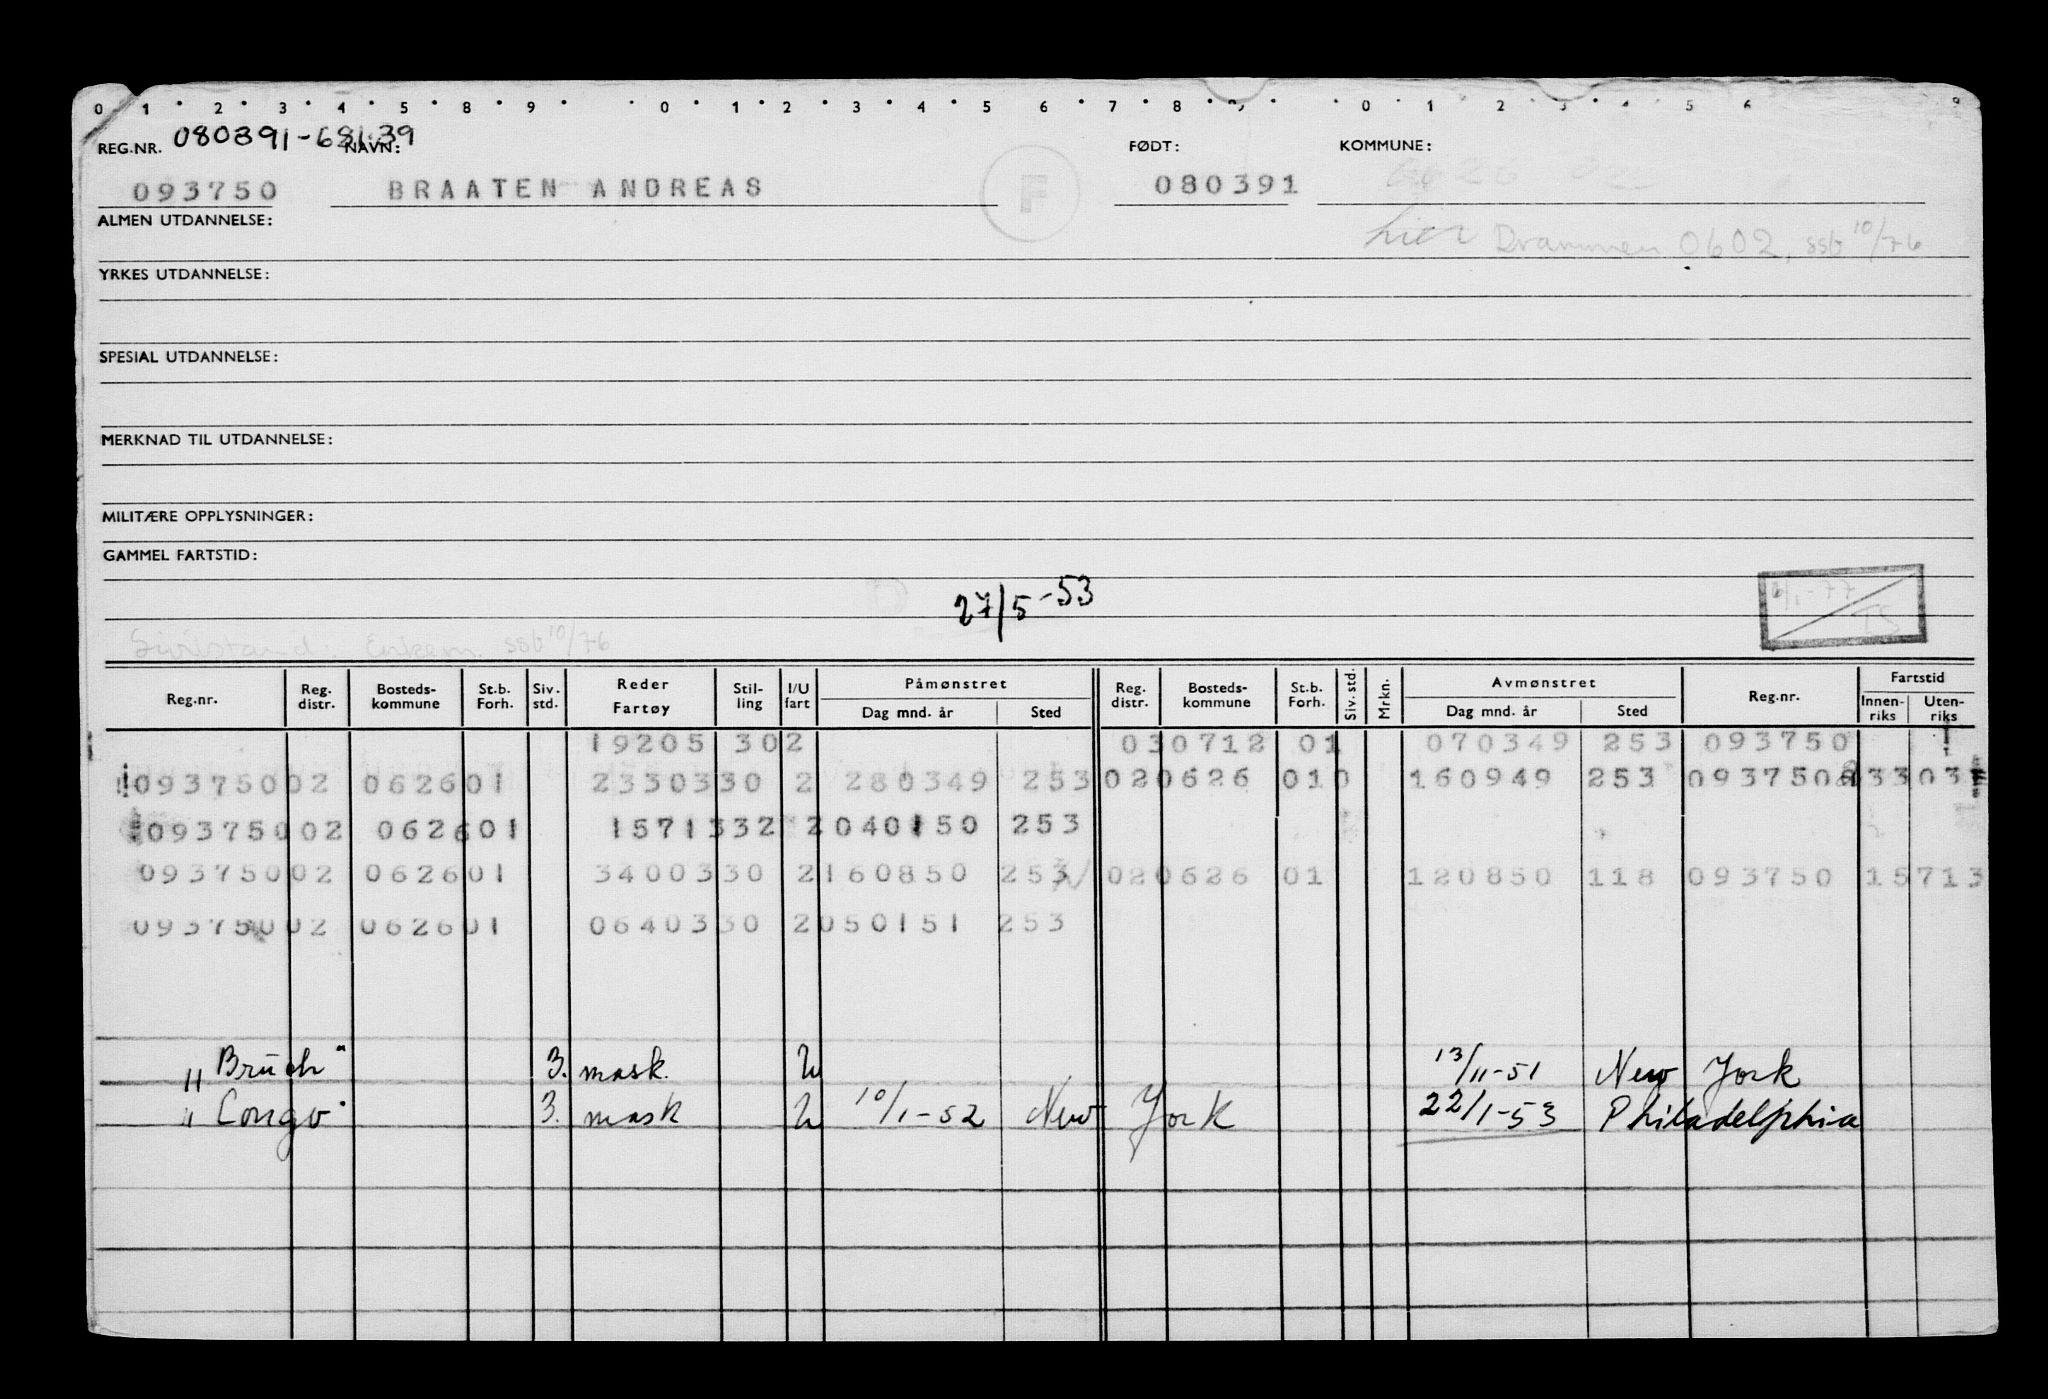 0 1 2 3 4 5 8 9 0 1 2 3 4 5 6 7 8 9 0 1 2 3 4 5 6 9
REG.NR. 080391-68139 NAVN: FØDT: KOMMUNE:
093750 BRAATEN ANDREAS F 080391
ALMEN UTDANNELSE: Lier Drammen 0602, ssb 10/76
YRKES UTDANNELSE:
SPESIAL UTDANNELSE:
MERKNAD TIL UTDANNELSE:
MILITÆRE OPPLYSNINGER:
GAMMEL FARTSTID:
27/5-53
6/1-77 TS
Sivilstand: Enkem. ssb 10/76
Reg.nr. Reg. distr. Bosteds-kommune St.b. Forh. Siv. std. Reder Fartøy Stil-ling I/U fart Påmønstret Dag mnd. år Sted Reg. distr. Bosteds-kommune St.b. Forh. Siv. std. Mrkn. Avmønstret Dag mnd. år Sted Reg.nr. Fartstid Innen-riks Uten-riks
19205 302 030712 01 070349 253 093750
09375002 062601 2330330 2 280349 253 020626 010 160949 253 093750
09375002 062601 1571332 2 040150 253
09375002 062601 3400330 2 160850 253 020626 01 120850 118 093750 15713
09375002 062601 0640330 2 050151 253
"Bruch" 3. mask. U 13/11-51 New York
"Congo" 3. mask U 10/1-52 New York 22/1-53 Philadelphia